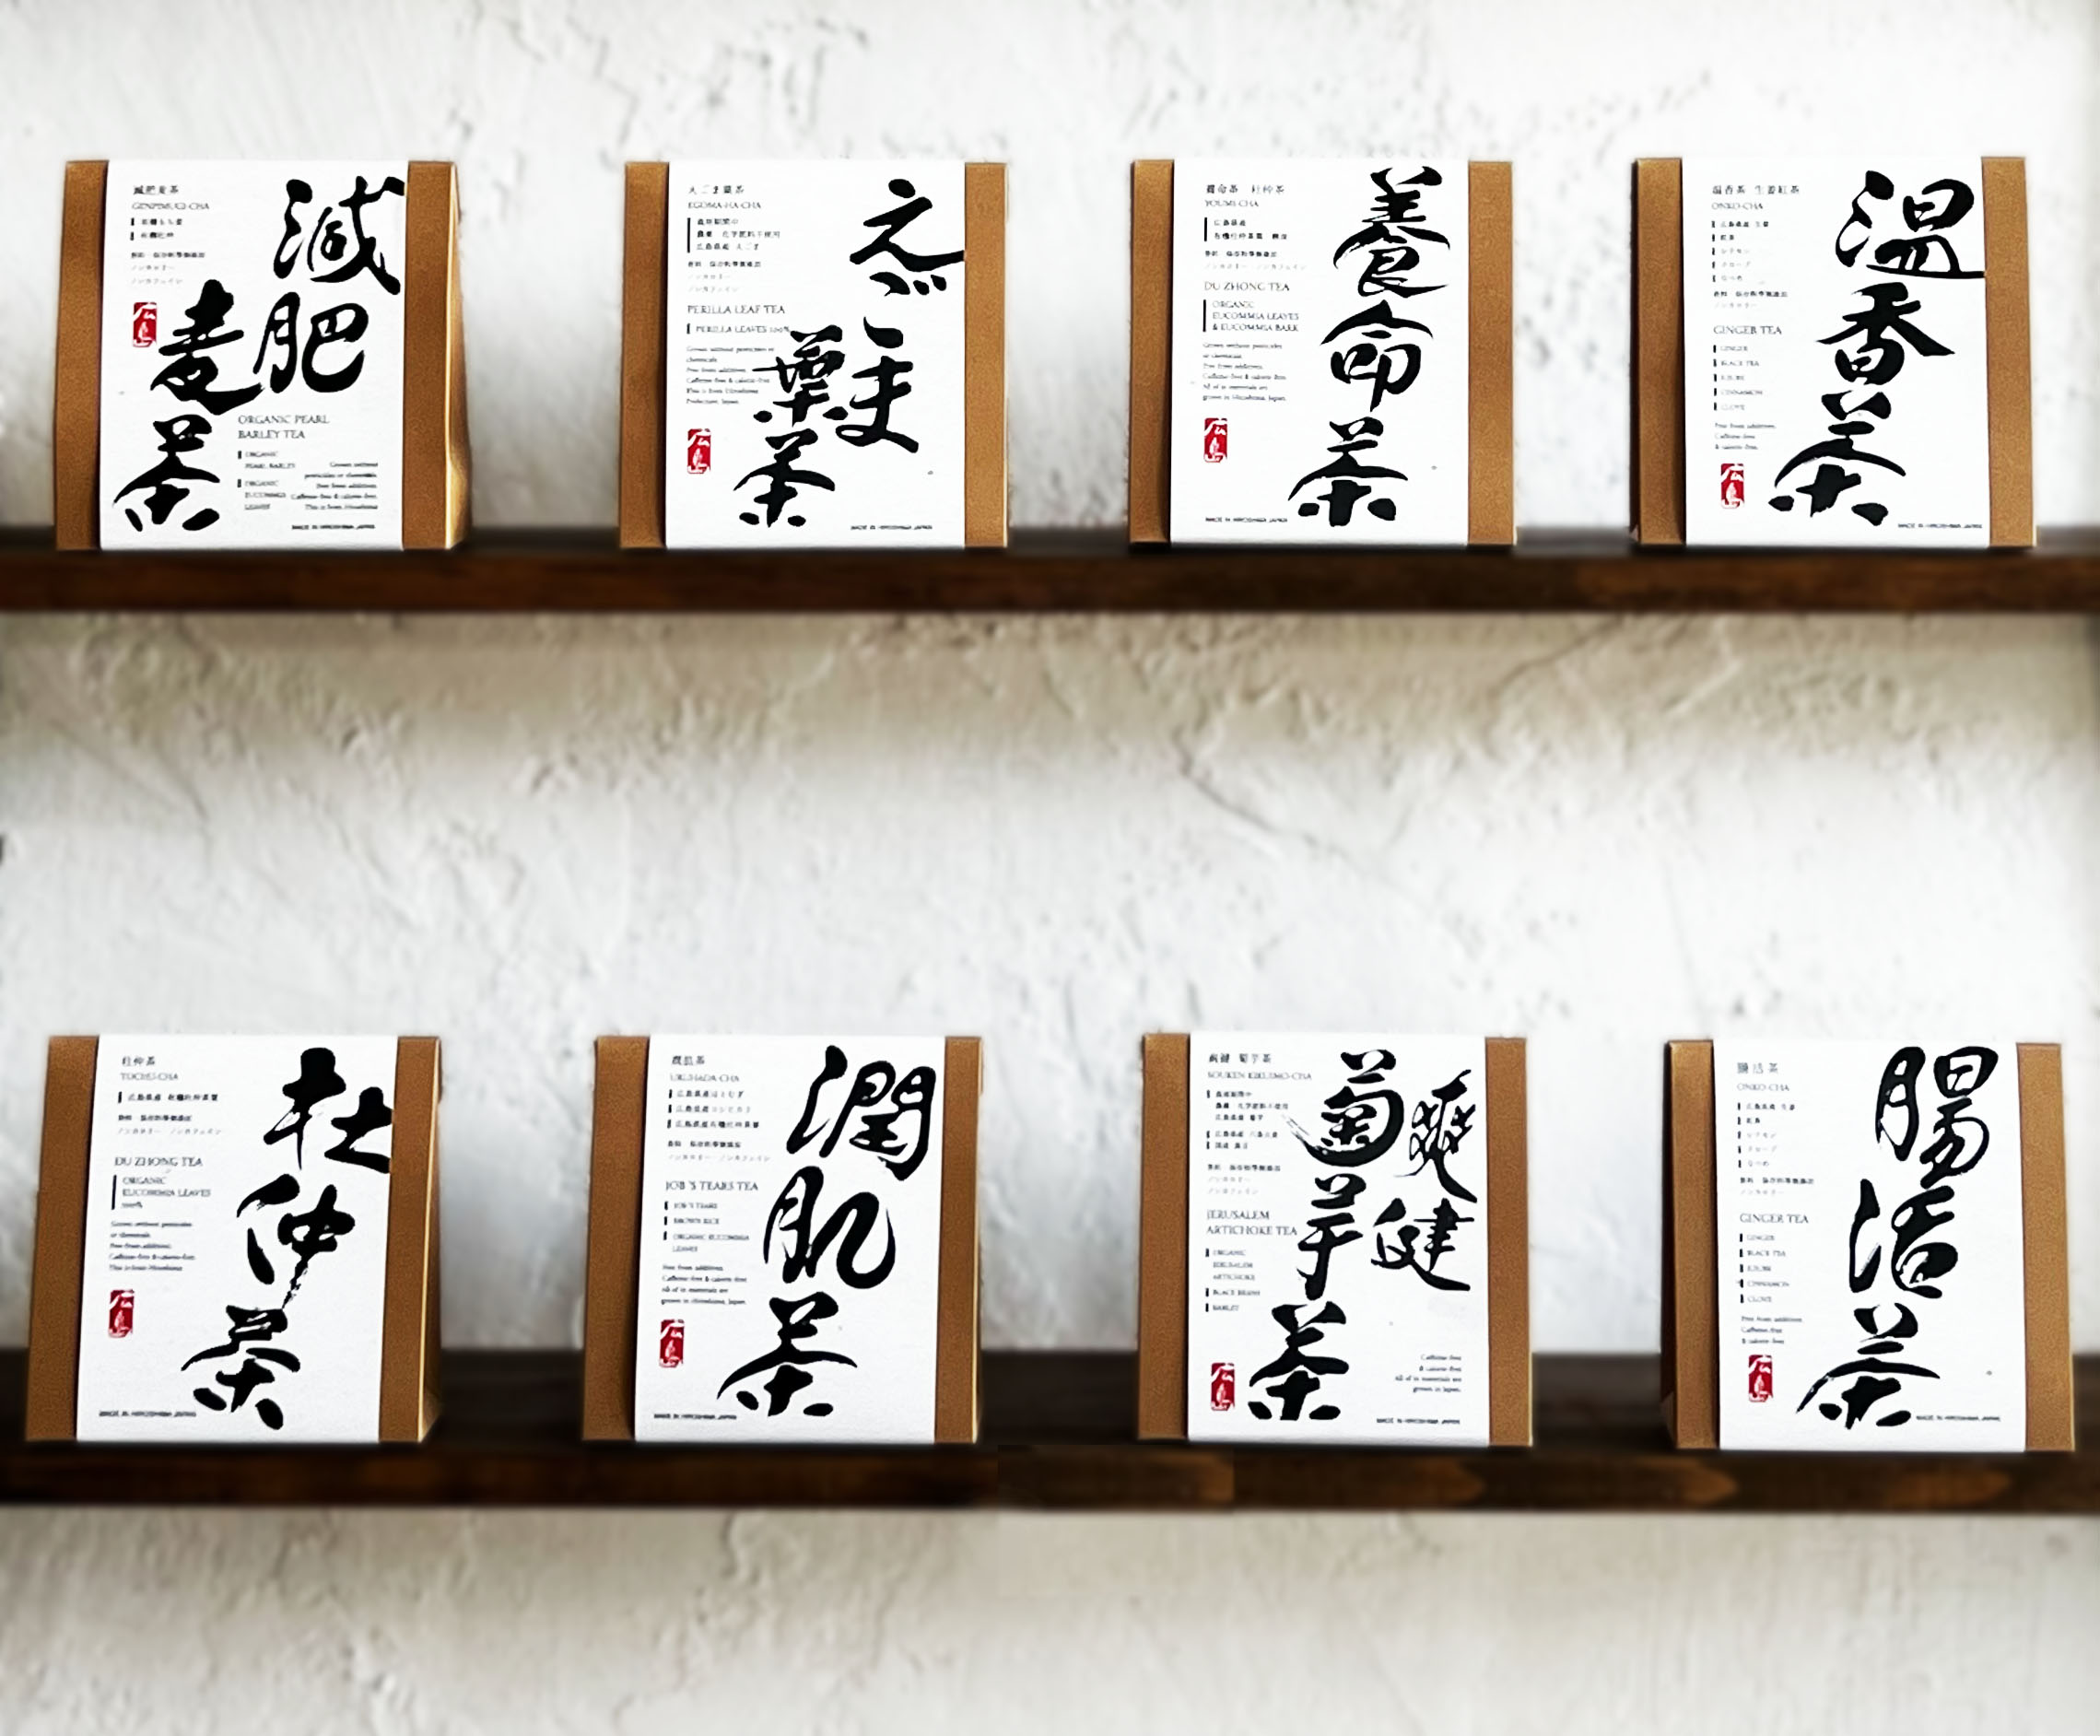 減肥
麦茶
減肥麦茶
GENPIMUGI-CHA
ORGANIC PEARL
BARLEY TEA
ORGANIC
PEARL BARLEY
ORGANIC
EUCOMMIA
LEAVES
Grown without
pesticides or chemicals.
Free from additives.
Caffeine-free & calorie-free.
This is from Hiroshima
MADE IN HIROSHIMA JAPAN
えごま
葉茶
えごま葉茶
EGOMA-HA-CHA
PERILLA LEAF TEA
PERILLA LEAVES 100%
Grown without pesticides or
chemicals.
Free from additives.
Caffeine-free & calorie-free.
MADE IN HIROSHIMA JAPAN
養命茶
養命茶 杜仲茶
YOUMI-CHA
広島県産
DU ZHONG TEA
ORGANIC
EUCOMMIA LEAVES
& EUCOMMIA BARK
Grown without pesticides
or chemicals.
Free from additives.
Caffeine-free & calorie-free.
All of is materials are
grown in Hiroshima, Japan.
MADE IN HIROSHIMA JAPAN
温香茶
温香茶 生姜紅茶
ONKO-CHA
広島県産 生姜
紅茶
シナモン
クローブ
なつめ
GINGER TEA
GINGER
BLACK TEA
JUJUBE
CINNAMON
CLOVE
Free from additives.
Caffeine-free
& calorie-free.
MADE IN HIROSHIMA JAPAN
杜仲茶
杜仲茶
TOCHU-CHA
広島県産 有機杜仲茶葉
DU ZHONG TEA
ORGANIC
EUCOMMIA LEAVES
100%
Grown without pesticides
or chemicals.
Free from additives.
Caffeine-free & calorie-free.
This is from Hiroshima
MADE IN HIROSHIMA JAPAN
潤肌茶
潤肌茶
URUHADA-CHA
広島県産はとむぎ
広島県産コシヒカリ
広島県産有機杜仲茶葉
JOB'S TEARS TEA
JOB'S TEARS
BROWN RICE
ORGANIC EUCOMMIA
LEAVES
Free from additives.
Caffeine-free & calorie-free.
All of is materials are
grown in Hiroshima, Japan.
MADE IN HIROSHIMA JAPAN
爽健
菊芋茶
爽健 菊芋茶
SOUKEN KIKUIMO-CHA
JERUSALEM
ARTICHOKE TEA
ORGANIC
JERUSALEM
ARTICHOKE
BLACK BEANS
BARLEY
Caffeine-free
& calorie-free.
All of is materials are
grown in Japan.
MADE IN HIROSHIMA JAPAN
腸活茶
腸活茶
ONKO-CHA
広島県産 生姜
紅茶
シナモン
クローブ
なつめ
GINGER TEA
GINGER
BLACK TEA
JUJUBE
CINNAMON
CLOVE
Free from additives.
Caffeine-free
& calorie-free.
MADE IN HIROSHIMA JAPAN